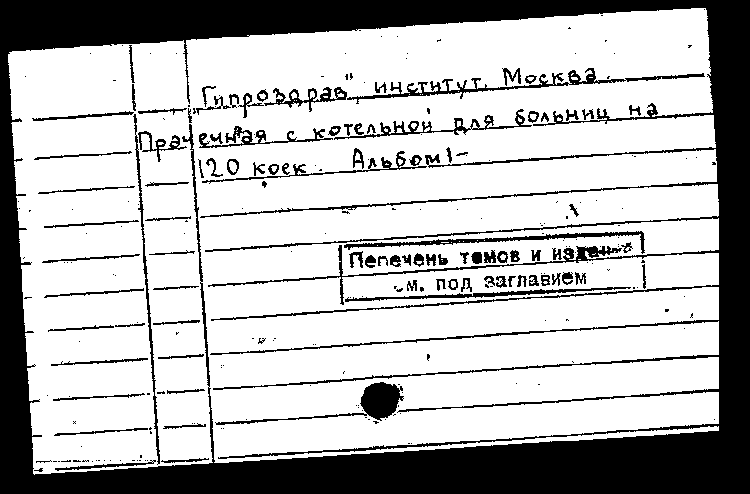 "Гипроздрав", институт. Москва.
Прачечная с котельной для больниц на
120 коек. Альбом 1-
Перечень томов и изданий
см. под заглавием